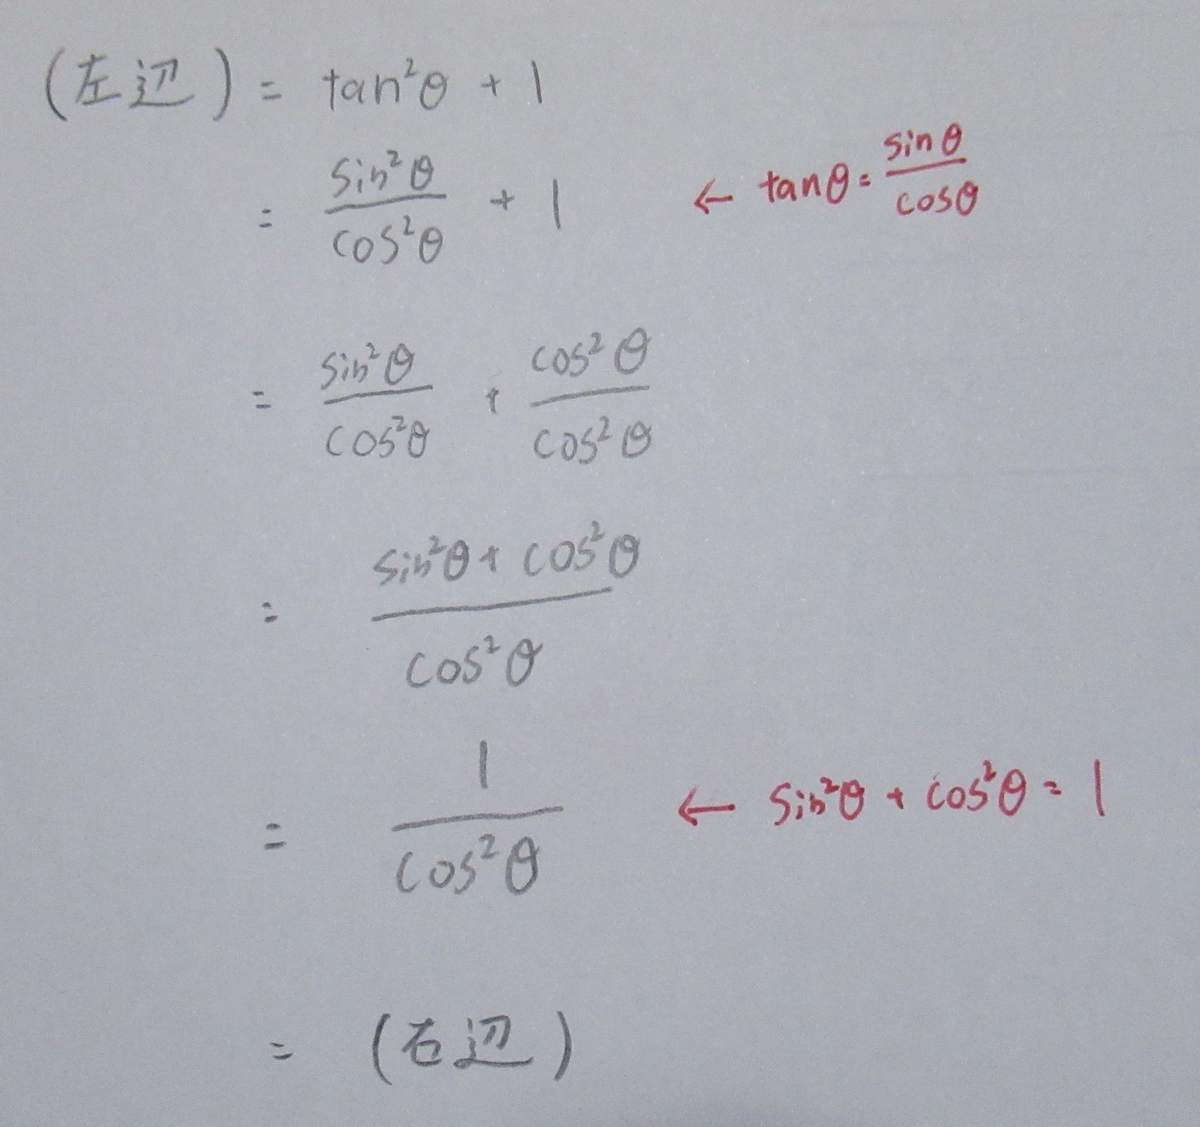 (左辺) = tan²θ + 1
= sin²θ/cos²θ + 1 ← tanθ = sinθ/cosθ
= sin²θ/cos²θ + cos²θ/cos²θ
= (sin²θ + cos²θ)/cos²θ
= 1/cos²θ ← sin²θ + cos²θ = 1
= (右辺)